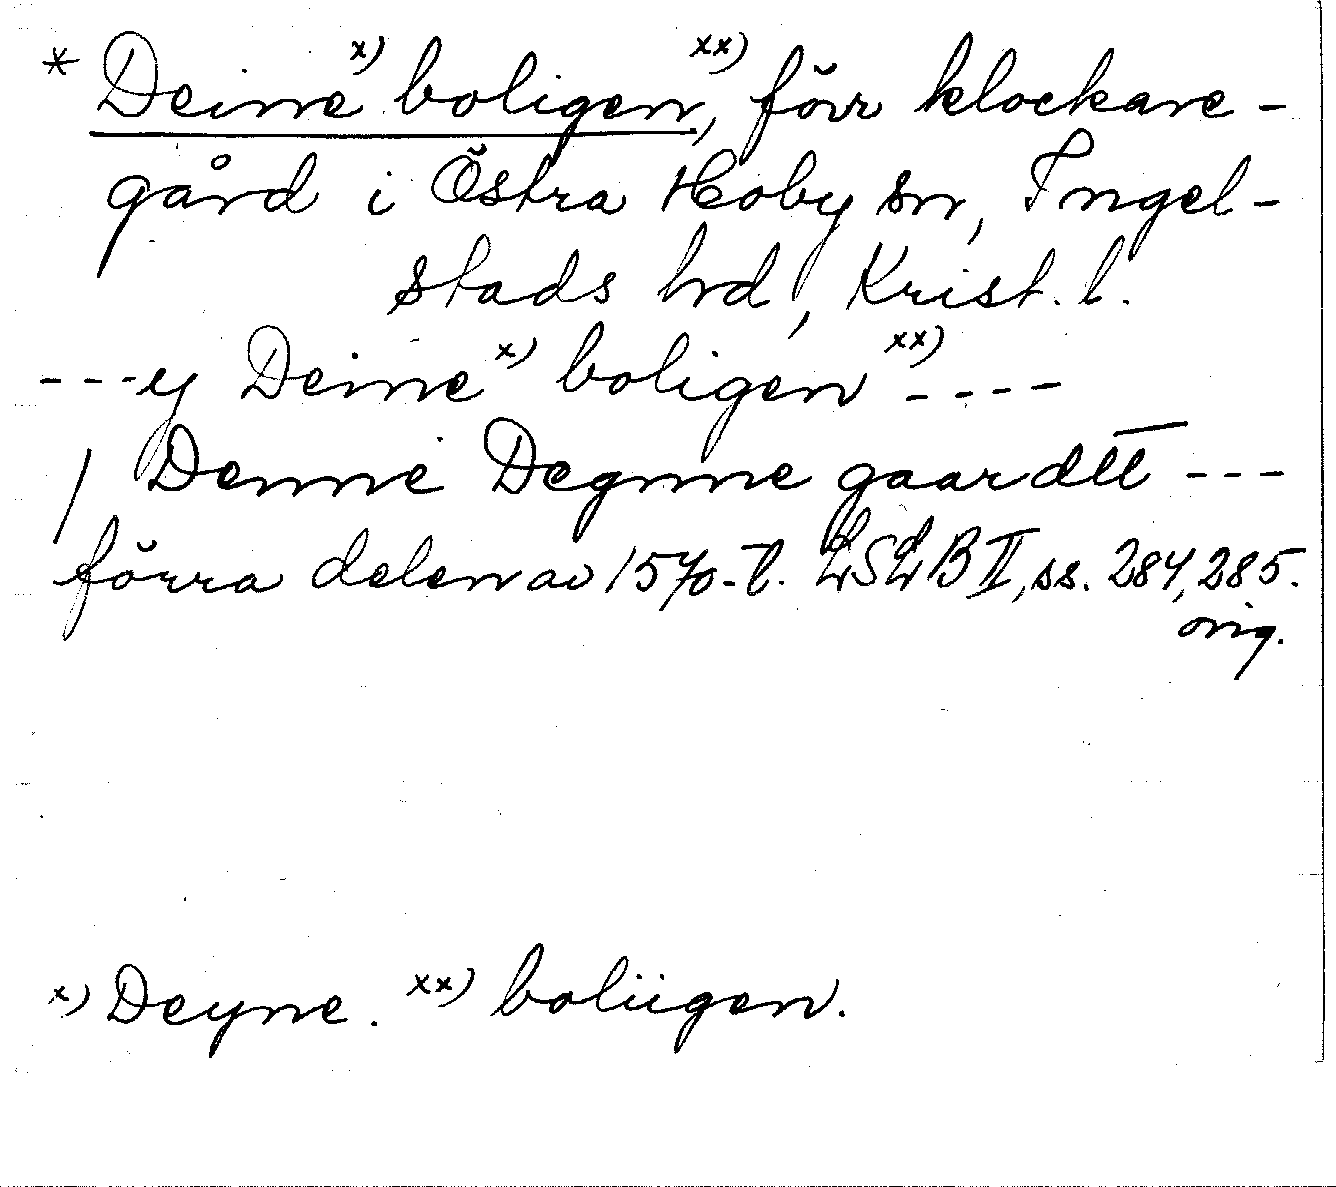 * Deine x) boligen xx), förr klockare-
gård i Östra Hoby sn, Ingel-
stads hd, Krist. l.
---y Deine x) boligen xx) ----
/ Denne Degnne gaardtt ---
förra delen av 1570-t. LSLB II, ss. 284, 285.
orig.
x) Deyne. xx) boliigen.